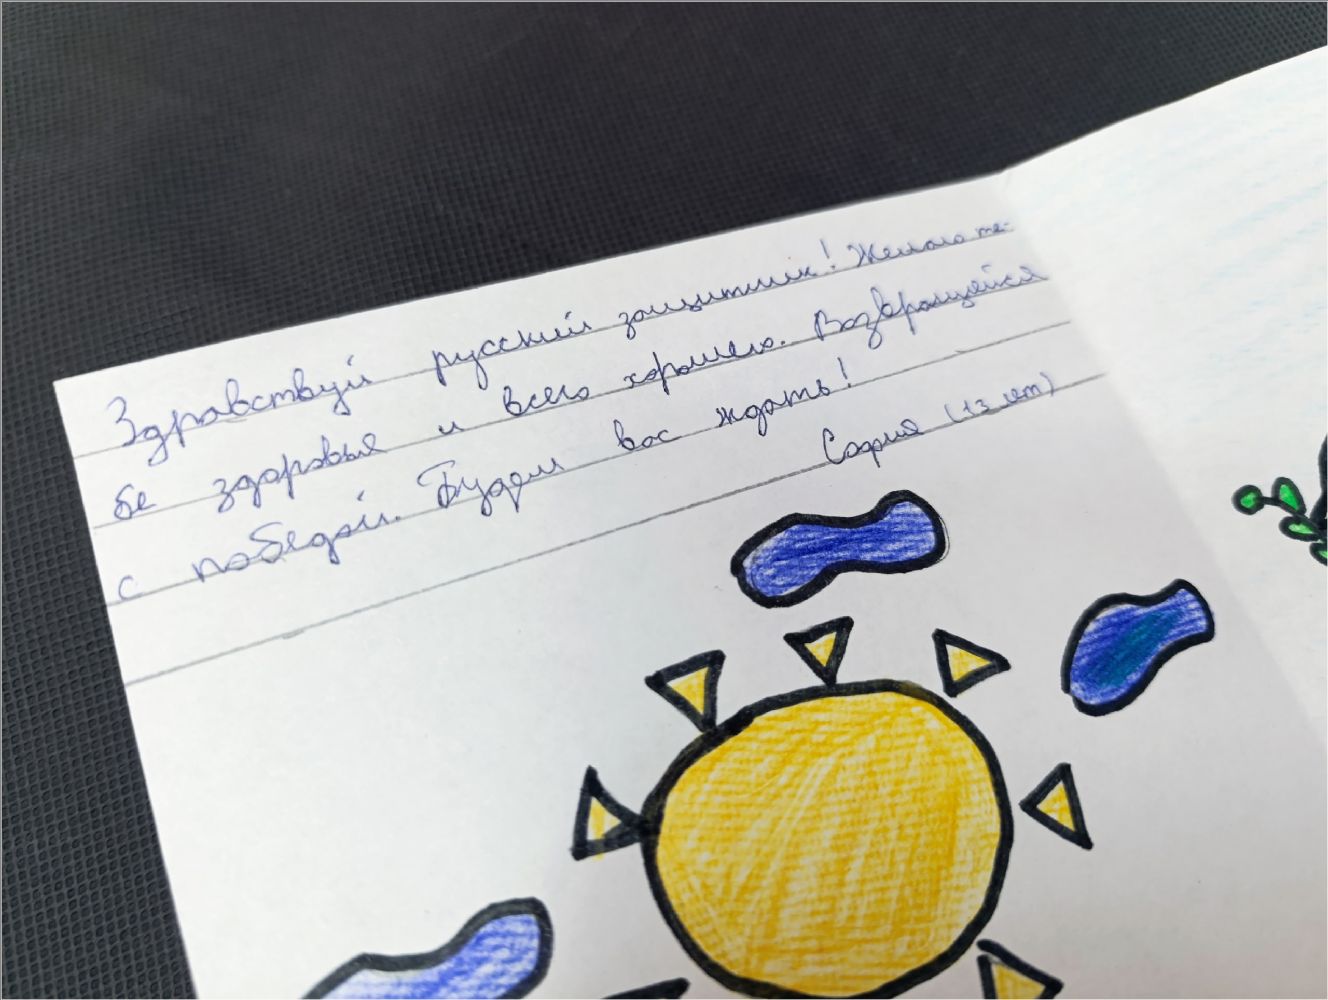 Здравствуй русский защитник! Желаю те-
бе здоровья и всего хорошего. Возвращяйся
с победой. Будем вас ждать!
София (13 лет)